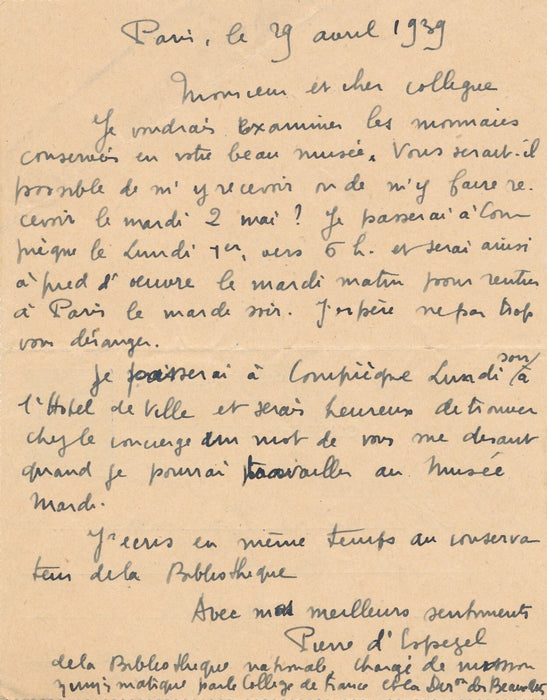 Paris, le 29 avril 1939
Monsieur et cher collegue
Je voudrais examiner les monnaies
conservées en votre beau musée. Vous serait-il
possible de m'y recevoir ou de m'y faire re-
cevoir le mardi 2 mai ? Je passerai à Com-
piègne le Lundi 1er, vers 6 h. et serai ainsi
à pied d'oeuvre le mardi matin pour rentrer
à Paris le mardi soir. J'espère ne pas trop
vous déranger.
Je passerai à Compiègne Lundi soir à
l'Hotel de Ville et serais heureux de trouver
chez le concierge un mot de vous me disant
quand je pourrai travailler au Musée
Mardi.
J'écris en même temps au conserva
teur de la Bibliothèque
Avec mes meilleurs sentiments
Pierre d'Espezel
de la Bibliothèque nationale, chargé de mission
numismatique par le College de France et la Dir.on des Beaux Arts